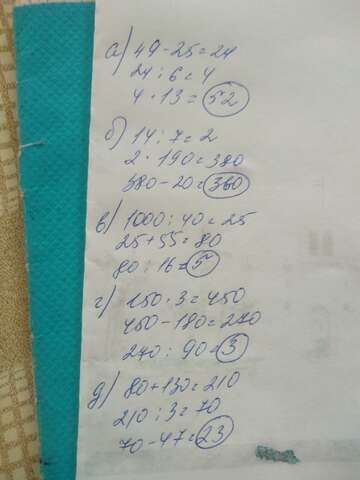 а) 49-25=24
24:6=4
4·13=52
б) 14:7=2
2·190=380
380-20=360
в) 1000:40=25
25+55=80
80:16=5
г) 150·3=450
450-180=270
270:90=3
д) 80+130=210
210:3=70
70-47=23